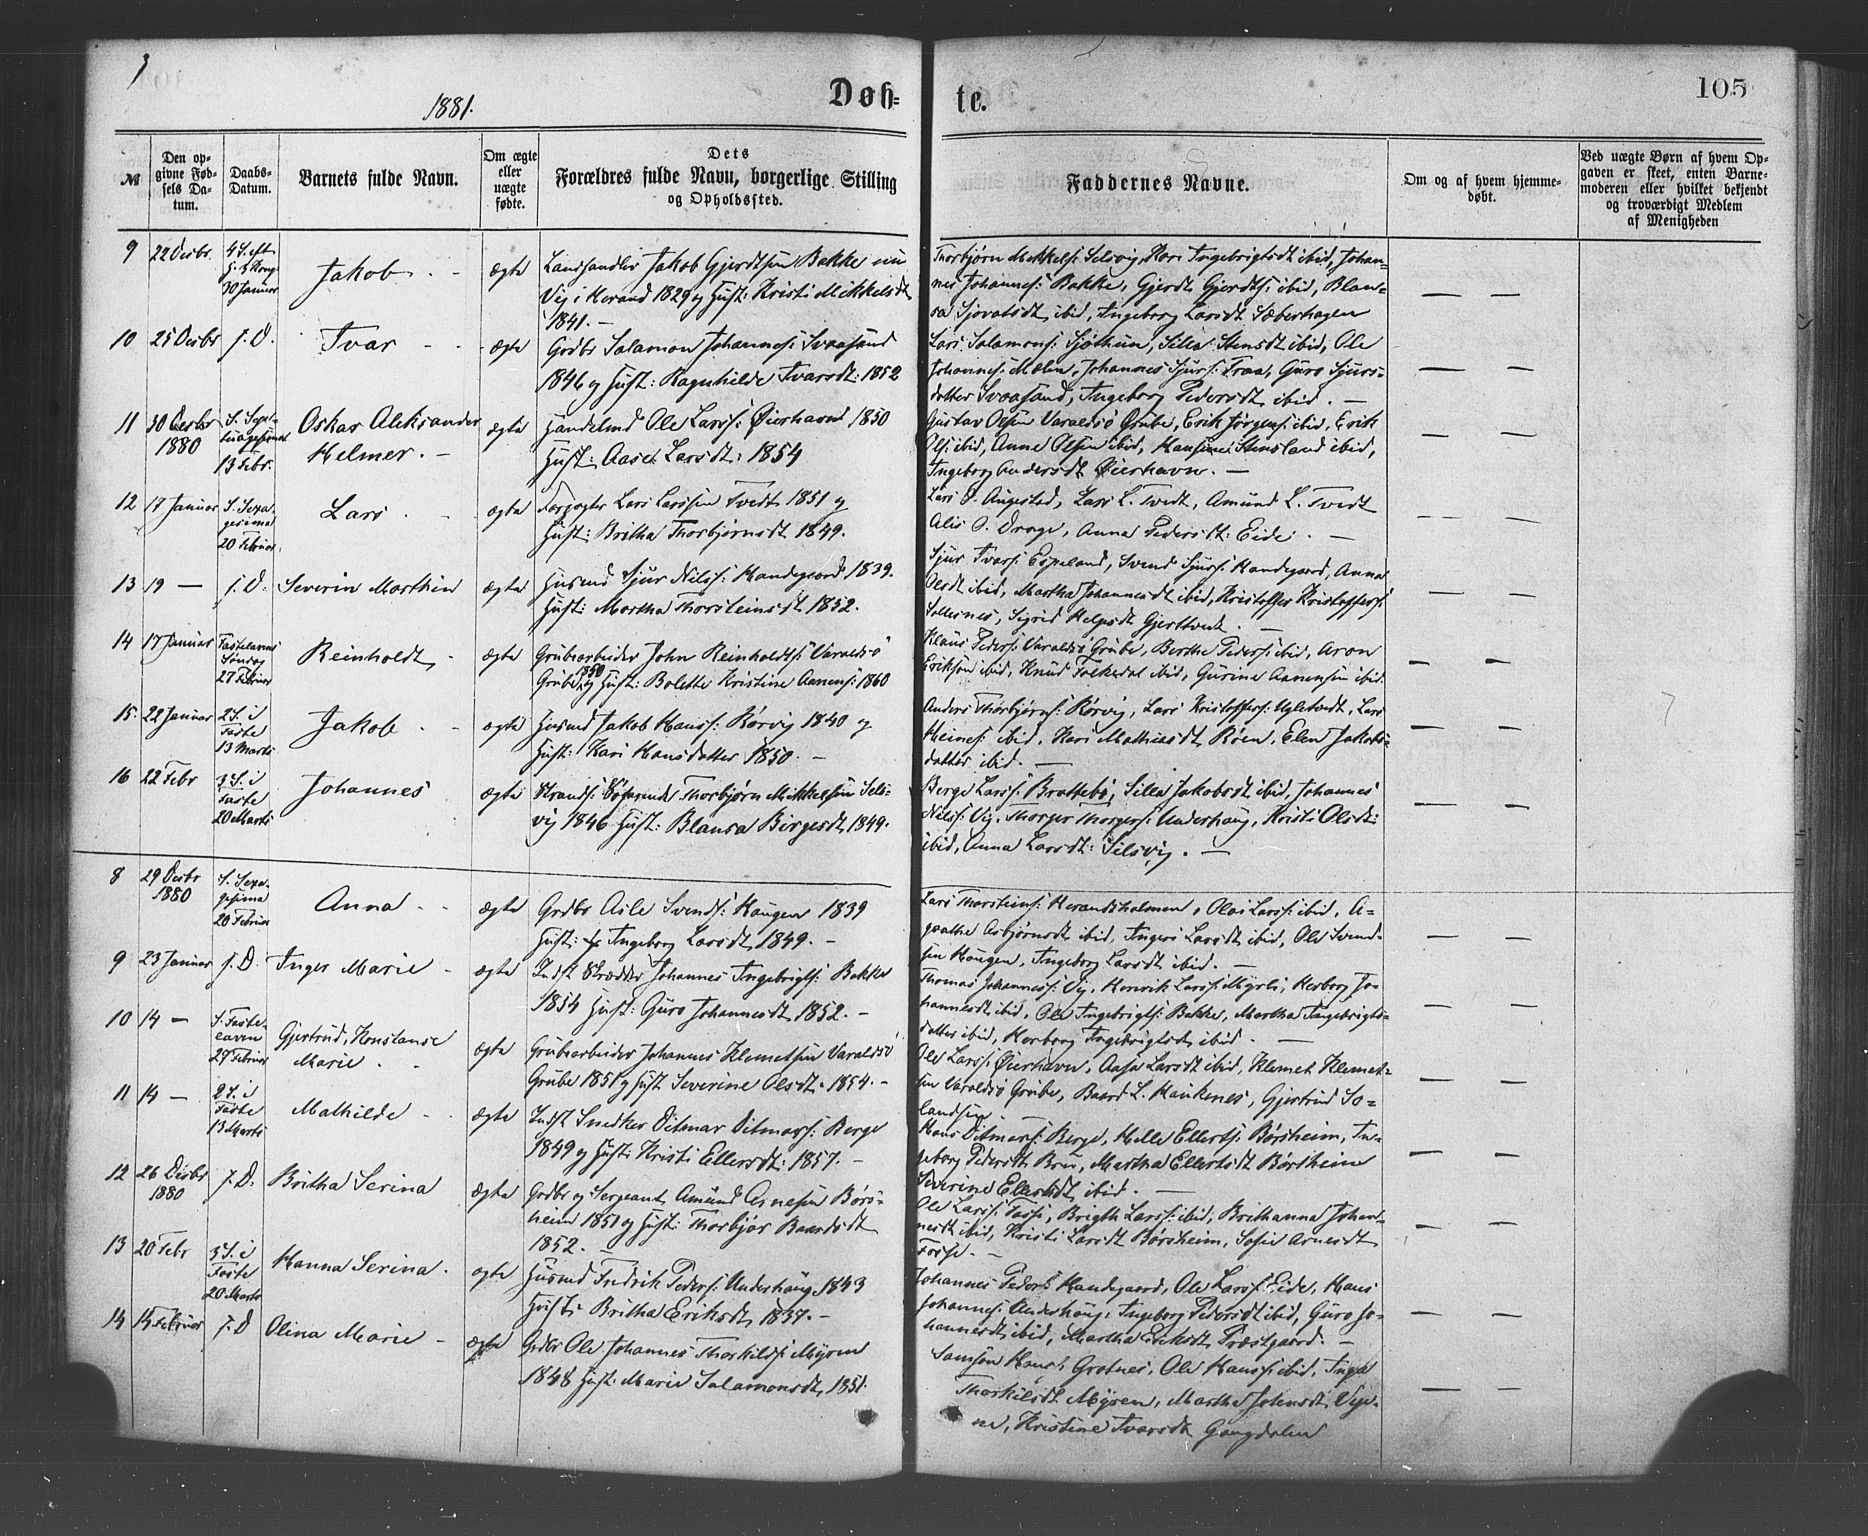 1881.
Døb=
te.
105
№
Den op-
givne Fød-
sels Da-
tum.
Daabs-
Datum.
Barnets fulde Navn.
Om ægte
eller
uægte
fødte.
Dets
Forældres fulde Navn, borgerlige Stilling
og Opholdssted.
Faddernes Navne.
Om og af hvem hjemme-
døbt.
Ved uægte Børn af hvem Op-
gaven er skeet, enten Barne-
moderen eller hvilket bekjendt
og troværdigt Medlem
af Menigheden
9 22 Desbr. 4 S. eft. H. 3 Kong. 30 Januar Jakob ægte
Landhandler Jakob Gjerdtsen Bakke nu
Vig i Herand 1829 og Hust: Kristi Mikkelsdt
1841. —
Thorbjørn Mikkels: Selsvig, Kari Ingebrigtsdt ibid, Johan-
nes Johannes: Bakke, Gjerdt Gjerdts: ibid, Blan-
sa Sjovatsdt ibid, Ingeborg Larsdt Sæberhagen
10 25 Desbr J. D. Ivar ægte
Grdbr Salamon Johannes: Svaasand
1846 og Hust: Ragnhilde Ivarsdt: 1852
Lars Salamons: Sjothun, Silla Stensdt ibid, Ole
Johannes: Mælen, Johannes Sjurs: Traa, Guro Sjurs-
datter Svaasand, Ingeborg Pedersdt ibid. —
11 30 Desbr 1880 S. Septuagesima 13 Febr. Oskar Aleksander
Helmer. — ægte
Handelsmd Ole Larss: Øierhavn 1850
Hust: Aase Larsdt: 1854
Gustav Olsen Varaldsø Grube, Erik Jørgens: ibid, Erik
Ols: ibid, Anne Olsen ibid, Hansine Stensland ibid,
Ingeborg Andersdt Øierhavn. —
12 17 Januar S. Sexagesima 20 Februar. Lars ægte
Forpagter Lars Larssen Tvedt 1851 og
Hust: Britha Thorbjørnsdt 1849.
Lars O. Augestad, Lars L. Tvedt, Amund L. Tvedt
Alis O. Drage, Anna Pedersdt: Eide. —
13 19 — J. D. Severin Marthin ægte
Husmd Sjur Nilss: Handegaard 1839.
Hust: Martha Thorsteinsdt 1852.
Sjur Ivars: Espeland, Svend Sjurs: Handegaard, Anna
Olsdt ibid, Martha Johannesdt ibid, Kristoffer Kristoffers:
Sollesnes, Sigrid Helgesdt Gjerttvedt. —
14 17 Januar Fastelavns Søndag 27 Februar Reinholdt ægte
Grubearbeider John Reinholdts: Varaldsø
Grube 1850 og Hust: Bolette Kristine Aanens: 1860
Klaus Peders: Varaldsø Grube, Berthe Peders: ibid, Aron
Eriksen ibid, Knud Folkedal ibid, Gurine Aanensen ibid.
15. 22 Januar 2 S. i Faste 13 Marts Jakob ægte
Husmd Jakob Hanss: Rørvig 1840 og
Hust: Kari Hansdatter 1850. —
Anders Thorbjørns: Rørvig, Lars Kristoffers: Ugletvedt, Lars
Heines: ibid, Kari Mathiasdt Røen, Elen Jakobs-
datter ibid. —
16 22 Febr 3 S. i Faste 20 Marts Johannes ægte
Strands: Søfarende Thorbjørn Mikkelsen Sels-
vig 1846 Hust: Blansa Birgesdt 1849.
Berge Larss: Brattebø, Silla Jakobsdt ibid, Johannes
Nilss: Vig, Thorger Thorgers: Underhaug, Kristi Olsdt:
ibid, Anna Larsdt: Selsvig. —
8 29 Desbr 1880 S. Sexagesima 20 Februar Anna ægte
Grdbr Asle Svends: Haugen 1839
Hust: Ingeborg Larsdt 1849. —
Lars Thorsteins: Herandsholmen, Olai Larss: ibid, A-
gathe Asbjørnsdt ibid, Inger Larsdt ibid, Ole Svend-
sen Haugen, Ingeborg Larsdt ibid. —
9 23 Januar J. D. Inger Marie ægte
Indst Skrædder Johannes Ingebrigts: Bakke
1854 Hust: Guro Johannesdt 1852. —
Thomas Johanness: Vig, Henrik Larss: Myrli, Herborg Jo-
hannesdt ibid, Ole Ingebrigts: Bakke, Martha Ingebrigts-
datter ibid, Herborg Ingebrigtsdt ibid. —
10 14 — S. Fastelaven 27 Februar Gjertrud, Konstanse
Marie ægte
Grubearbeider Johannes Klemetsen Varaldsø
Grube 1851 og Hust Severine Olsdt. 1854. —
Ole Larss: Øierhavn, Aasa Larsdt ibid, Klemet Klemet-
sen Varaldsø Grube, Baard L. Haukenes, Gjertrud So-
landsen —
11 14 — 2 S. i Faste 13 Marts Mathilde ægte
Indst Snedker Ditmar Ditmars: Berge
1849 og Hust: Kristi Ellersdt: 1857. —
Hans Ditmars: Berge, Helle Ellerts: Børsheim, In-
geborg Pedersdt Bru, Martha Ellertsdt Børsheim
Severine Ellertsdt ibid. —
12 26 Desbr 1880 J. D. Britha Serina ægte
Grdbr og Sergeant Amund Arnesen Børs-
heim 1851 og Hust: Thorbjør Baardsdt
1852.
Ole Larss: Fosse, Brigth Larss: ibid, Brithanna Johan-
nesdt ibid, Kristi Larsdt Børsheim, Sofie Arnesdt
Fosse. —
13 20 Febr 3 S. i Faste 20 Marts Hanna Serina. ægte
Husmd Fredrik Peders: Underhaug 1843
Hust: Britha Eriksdt 1837. —
Johannes Peders: Handegaard, Ole Larss: Eide, Hans
Johannes: Underhaug, Ingeborg Pedersdt ibid, Guro Jo-
hannesdt ibid, Martha Eriksdt Præstgaard. —
14 14 Februar J. D Olina Marie ægte
Grdbr Ole Johannes Thorkilds: Myren
1848 Hust: Marie Salamonsdt 1851.
Samson Hans: Grotnes, Ole Hanss: ibid, Inga
Thorkilsdt Myren, Martha Johnsdt Vige-
ne, Kristine Ivarsdt Gangdalen